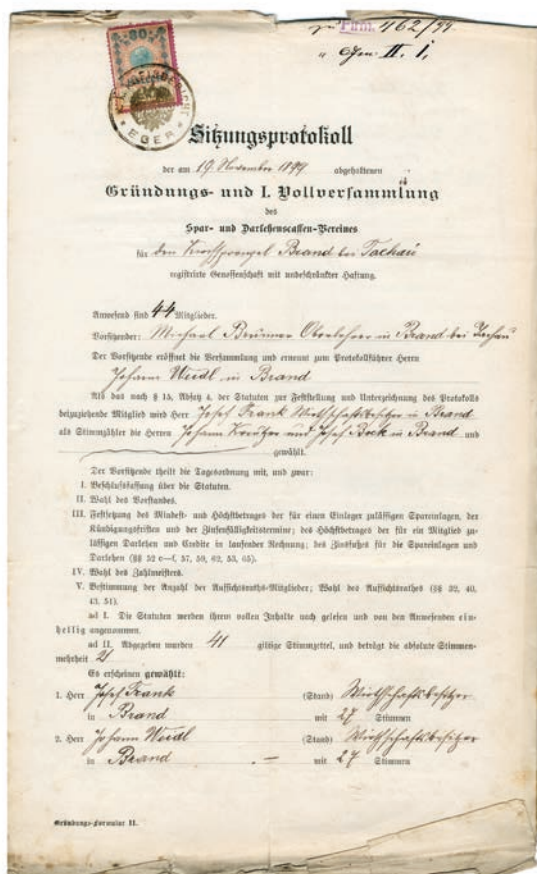 zu Firm. 462/99
" Gen II. 1,
30
EGER
Sitzungsprotokoll
der am 19. November 1899 abgehaltenen
Gründungs- und I. Vollversammlung
des
Spar- und Darlehenscassen-Vereines
für den Kirchsprengel Brand bei Tachau
registrirte Genossenschaft mit unbeschränkter Haftung.
Anwesend sind 44 Mitglieder.
Vorsitzender: Michael Brunner Oberlehrer in Brand bei Tachau
Der Vorsitzende eröffnet die Versammlung und ernennt zum Protokollführer Herrn
Johann Weidl in Brand
Als das nach § 15, Absatz 4, der Statuten zur Feststellung und Unterzeichnung des Protokolls
beizuziehende Mitglied wird Herr Josef Frank Wirthschaftsbesitzer in Brand
als Stimmzähler die Herren Johann Kreutzer und Josef Bock in Brand und
gewählt.
Der Vorsitzende theilt die Tagesordnung mit, und zwar:
I. Beschlußfassung über die Statuten.
II. Wahl des Vorstandes.
III. Festsetzung des Mindest- und Höchstbetrages der für einen Einleger zulässigen Spareinlagen, der
Kündigungsfristen und der Zinsenfälligkeitstermine; des Höchstbetrages der für ein Mitglied zu-
lässigen Darlehen und Credite in laufender Rechnung; des Zinsfußes für die Spareinlagen und
Darlehen (§§ 52 c—f, 57, 59, 62, 53, 65).
IV. Wahl des Zahlmeisters.
V. Bestimmung der Anzahl der Aufsichtsraths-Mitglieder; Wahl des Aufsichtsrathes (§§ 32, 40,
43, 51).
ad I. Die Statuten werden ihrem vollen Inhalte nach gelesen und von den Anwesenden ein-
hellig angenommen.
ad II. Abgegeben wurden 41 giltige Stimmzettel, und beträgt die absolute Stimmen-
mehrheit 21
Es erscheinen gewählt:
1. Herr Josef Frank (Stand) Wirthschaftsbesitzer
in Brand mit 27 Stimmen
2. Herr Johann Weidl (Stand) Wirthschaftsbesitzer
in Brand .— mit 27 Stimmen
Gründungs-Formular II.